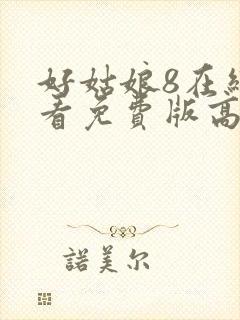 好姑娘8在线
看免费版高
諾美尔